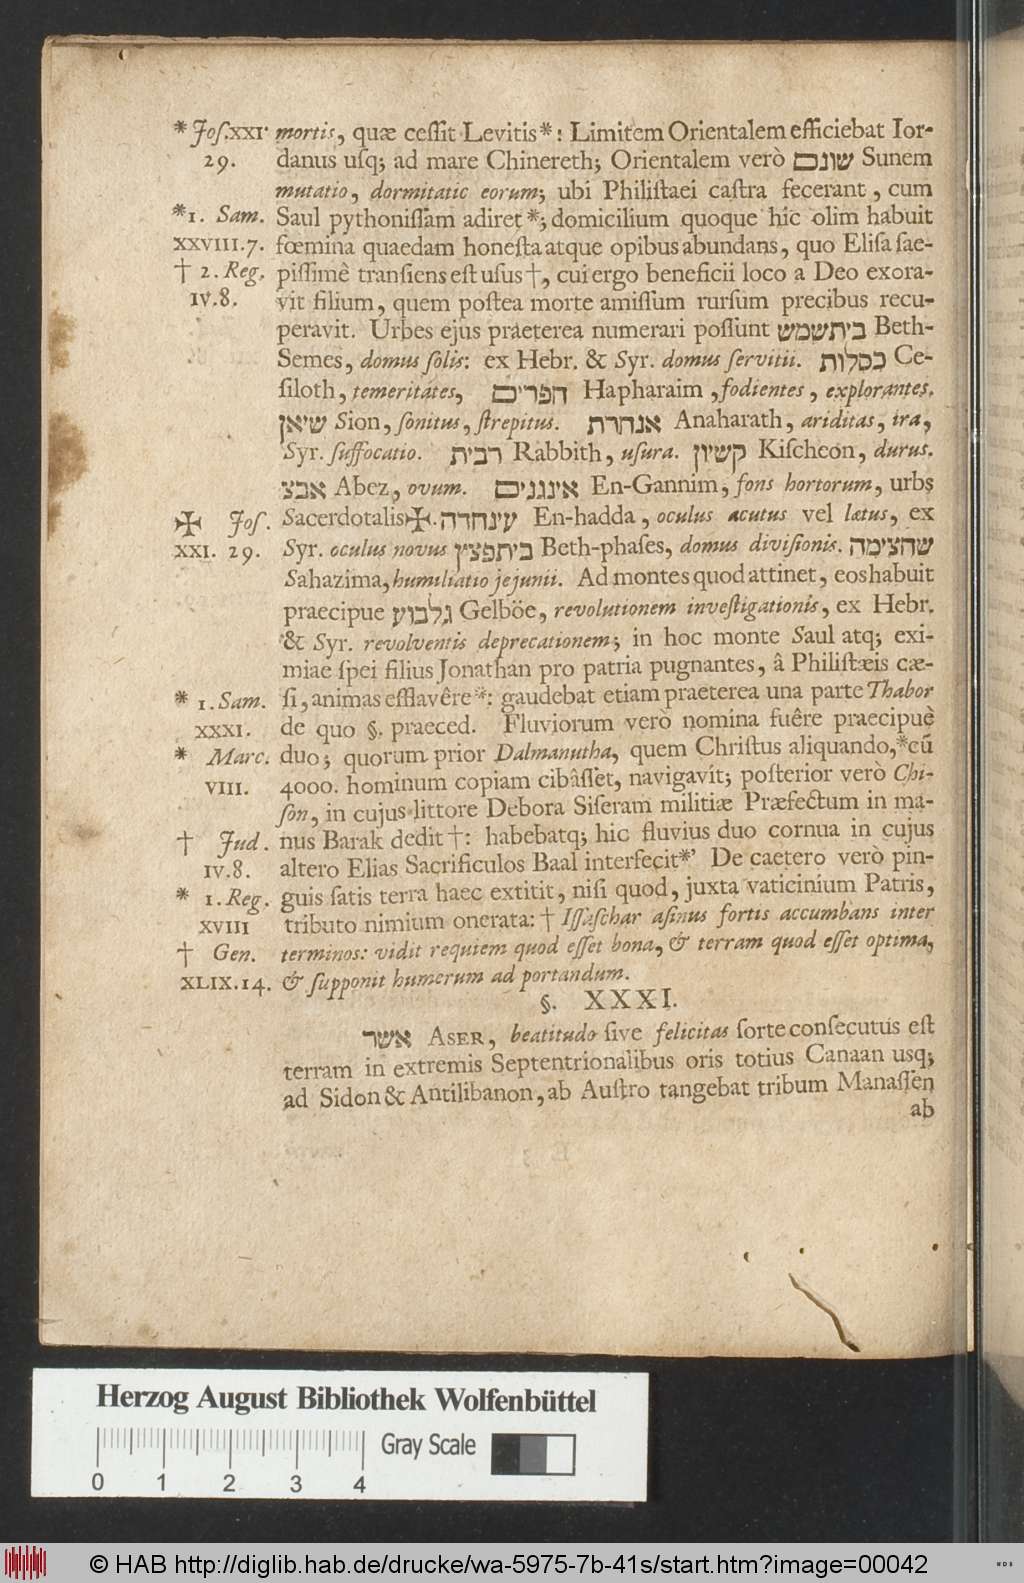 * Joſ.XXI mortis, quæ ceſſit Levitis*: Limitem Orientalem efficiebat Ior-
29. danus uſq; ad mare Chinereth; Orientalem verò שונם Sunem
mutatio, dormitatic eorum; ubi Philiſtaei caſtra fecerant, cum
*1. Sam. Saul pythoniſſam adiret*; domicilium quoque hic olim habuit
XXVIII.7. fœmina quaedam honeſta atque opibus abundans, quo Eliſa ſae-
† 2. Reg. piſſimè tranſiens eſt uſus†, cui ergo beneficii loco a Deo exora-
IV.8. vit filium, quem poſtea morte amiſſum rurſum precibus recu-
peravit. Urbes ejus praeterea numerari poſſunt ביתשמש Beth-
Semes, domus ſolis: ex Hebr. & Syr. domus ſervitii. כסלות Ce-
ſiloth, temeritates, הפרים Hapharaim, fodientes, explorantes.
שיאן Sion, ſonitus, ſtrepitus. אנהרת Anaharath, ariditas, ira,
Syr. ſuffocatio. רבית Rabbith, uſura. קשיון Kiſcheon, durus.
אבצ Abez, ovum. אינגנים En-Gannim, fons hortorum, urbs
✠ Joſ. Sacerdotalis✠. עינחדה En-hadda, oculus acutus vel lætus, ex
XXI. 29. Syr. oculus novus ביתפצץ Beth-phaſes, domus diviſionis. שהצימה
Sahazima, humiliatio jejunii. Ad montes quod attinet, eos habuit
praecipue גלבוע Gelböe, revolutionem inveſtigationis, ex Hebr.
& Syr. revolventis deprecationem; in hoc monte Saul atq; exi-
miae ſpei filius Jonathan pro patria pugnantes, â Philiſtæis cæ-
* 1. Sam. ſi, animas efflavêre*: gaudebat etiam praeterea una parte Thabor
XXXI. de quo §. praeced. Fluviorum verò nomina fuêre praecipuè
* Marc. duo; quorum prior Dalmanutha, quem Chriſtus aliquando,*cū
VIII. 4000. hominum copiam cibâſſet, navigavit; poſterior verò Chi-
ſon, in cujus littore Debora Siſeram militiæ Præfectum in ma-
† Jud. nus Barak dedit†: habebatq; hic fluvius duo cornua in cujus
IV.8. altero Elias Sacrificulos Baal interfecit*’ De caetero verò pin-
* 1. Reg. guis ſatis terra haec extitit, niſi quod, juxta vaticinium Patris,
XVIII tributo nimium onerata: † Iſſaſchar aſinus fortis accumbans inter
† Gen. terminos: vidit requiem quod eſſet bona, & terram quod eſſet optima,
XLIX.14. & ſupponit humerum ad portandum.
§. XXXI.
אשר ASER, beatitudo ſive felicitas ſorte conſecutus eſt
terram in extremis Septentrionalibus oris totius Canaan usq;
ad Sidon & Antilibanon, ab Auſtro tangebat tribum Manaſſen
ab
Herzog August Bibliothek Wolfenbüttel
Gray Scale
0 1 2 3 4
© HAB http://diglib.hab.de/drucke/wa-5975-7b-41s/start.htm?image=00042